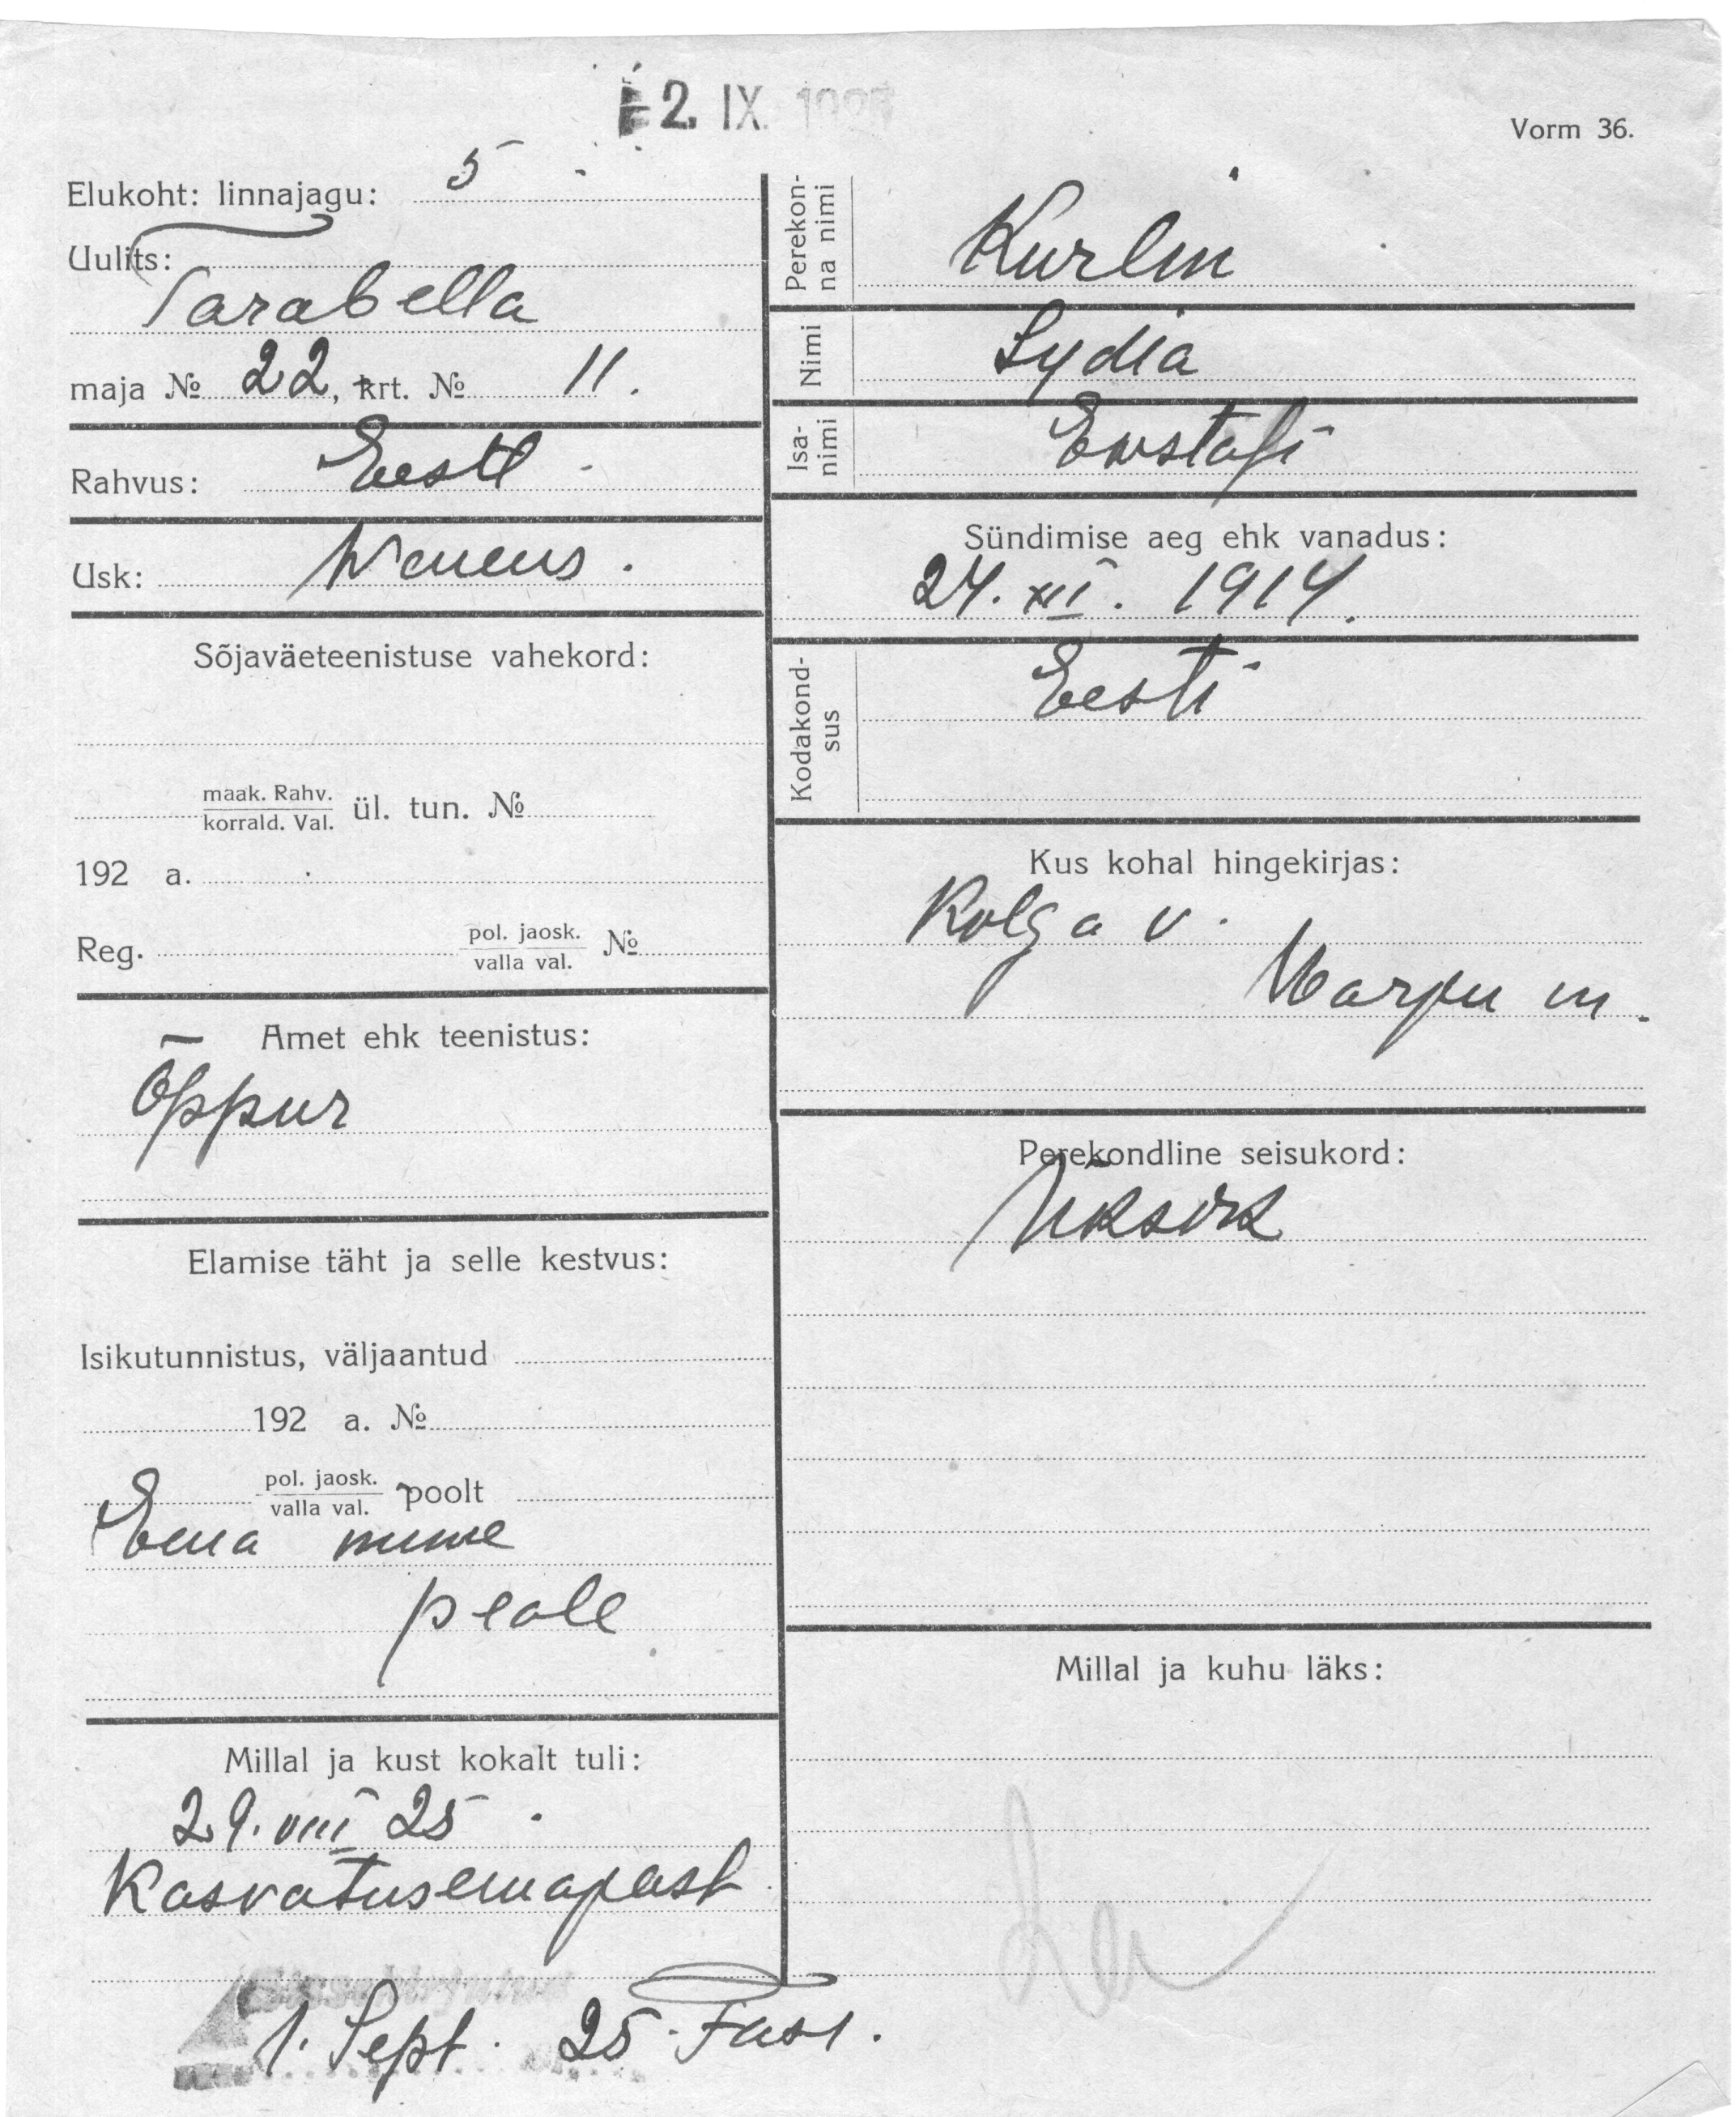 2. IX. 192
Vorm 36.
Elukoht: linnajagu: 5
Uulits:
Parabella
maja № 22, krt. № 11.
Rahvus: Eesti
Usk: Weneus.
Sõjaväeteenistuse vahekord:
maak. Rahv.
korrald. Val. ül. tun. №
192 a.
Reg. pol. jaosk.
valla val. №
Amet ehk teenistus:
Õppur
Elamise täht ja selle kestvus:
Isikutunnistus, väljaantud
192 a. №
pol. jaosk.
valla val. poolt
Ema nime
peale
Millal ja kust kokalt tuli:
29. VIII 25
Kasvatusemajast
1. Sept. 25.
Perekon-
na nimi
Kurlin
Nimi
Lydia
Isa-
nimi
Ewstafi
Sündimise aeg ehk vanadus:
24. XII. 1914.
Kodakond-
sus
Eesti
Kus kohal hingekirjas:
Kolga v.
Harju m.
Perekondline seisukord:
Üksik
Millal ja kuhu läks: